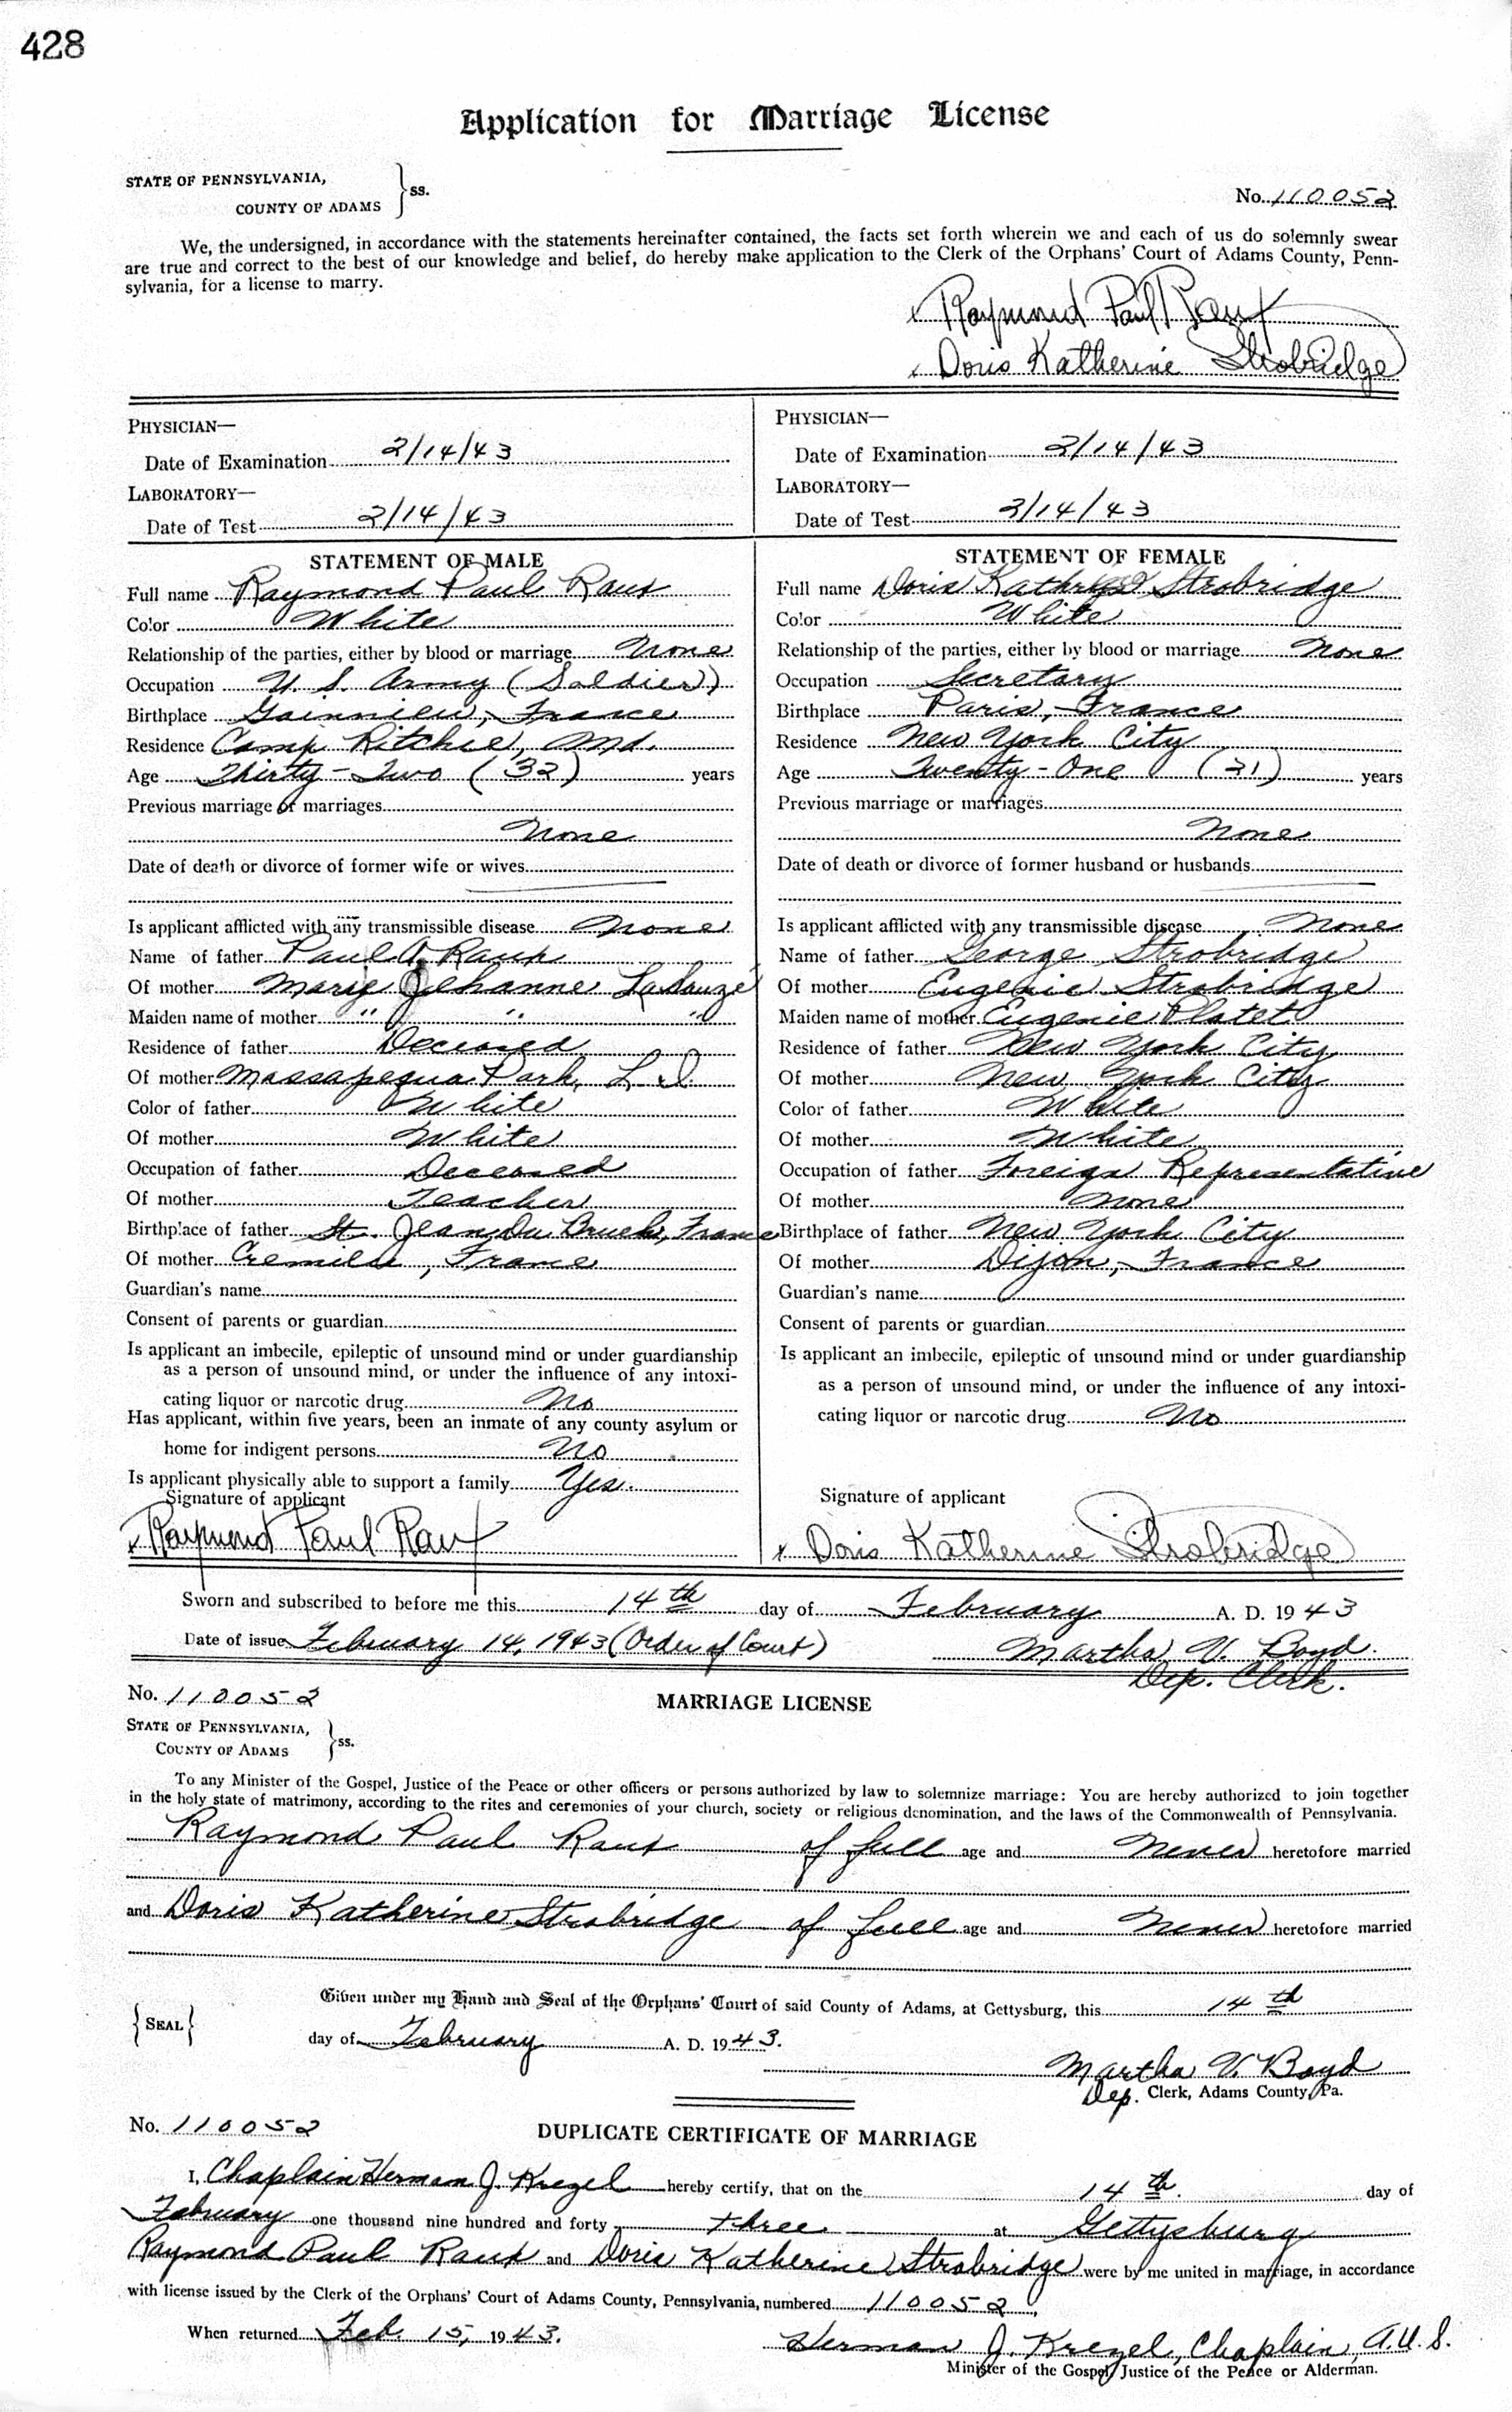 428
Application for Marriage License
STATE OF PENNSYLVANIA,
COUNTY OF ADAMS } ss.
No. 110052
We, the undersigned, in accordance with the statements hereinafter contained, the facts set forth wherein we and each of us do solemnly swear
are true and correct to the best of our knowledge and belief, do hereby make application to the Clerk of the Orphans' Court of Adams County, Penn-
sylvania, for a license to marry.
x Raymond Paul Raux
x Doris Katherine Strobridge
PHYSICIAN—
Date of Examination 2/14/43
LABORATORY—
Date of Test 2/14/43
PHYSICIAN—
Date of Examination 2/14/43
LABORATORY—
Date of Test 2/14/43
STATEMENT OF MALE
Full name Raymond Paul Raux
Color White
Relationship of the parties, either by blood or marriage None
Occupation U. S. Army (Soldier)
Birthplace France
Residence Camp Ritchie, Md.
Age Thirty-Two (32) years
Previous marriage or marriages
None
Date of death or divorce of former wife or wives
Is applicant afflicted with any transmissible disease None
Name of father Paul A. Raux
Of mother Marie Jehanne
Maiden name of mother " " "
Residence of father Deceased
Of mother Massapequa Park, L. I.
Color of father White
Of mother White
Occupation of father Deceased
Of mother Teacher
Birthplace of father St. Jean Du France
Of mother France
Guardian's name
Consent of parents or guardian
Is applicant an imbecile, epileptic of unsound mind or under guardianship
as a person of unsound mind, or under the influence of any intoxi-
cating liquor or narcotic drug No
Has applicant, within five years, been an inmate of any county asylum or
home for indigent persons No
Is applicant physically able to support a family Yes.
Signature of applicant
x Raymond Paul Raux
STATEMENT OF FEMALE
Full name Doris Strobridge
Color White
Relationship of the parties, either by blood or marriage None
Occupation Secretary
Birthplace Paris, France
Residence New York City
Age Twenty-One (21) years
Previous marriage or marriages
None
Date of death or divorce of former husband or husbands
Is applicant afflicted with any transmissible disease None
Name of father George Strobridge
Of mother Eugenie Strobridge
Maiden name of mother Eugenie Platet
Residence of father New York City
Of mother New York City
Color of father White
Of mother White
Occupation of father Foreign Representative
Of mother None
Birthplace of father New York City
Of mother Dijon, France
Guardian's name
Consent of parents or guardian
Is applicant an imbecile, epileptic of unsound mind or under guardianship
as a person of unsound mind, or under the influence of any intoxi-
cating liquor or narcotic drug No
Signature of applicant
x Doris Katherine Strobridge
Sworn and subscribed to before me this 14th day of February A. D. 1943
Date of issue February 14, 1943 (Order of Court) Martha V. Boyd
Dep. Clerk.
No. 110052
MARRIAGE LICENSE
STATE OF PENNSYLVANIA,
COUNTY OF ADAMS } ss.
To any Minister of the Gospel, Justice of the Peace or other officers or persons authorized by law to solemnize marriage: You are hereby authorized to join together
in the holy state of matrimony, according to the rites and ceremonies of your church, society or religious denomination, and the laws of the Commonwealth of Pennsylvania.
Raymond Paul Raux of full age and Never heretofore married
and Doris Katherine Strobridge of full age and Never heretofore married
{SEAL}
Given under my Hand and Seal of the Orphans' Court of said County of Adams, at Gettysburg, this 14th
day of February A. D. 1943.
Martha V. Boyd
Dep. Clerk, Adams County, Pa.
No. 110052
DUPLICATE CERTIFICATE OF MARRIAGE
I, Chaplain Herman J. Kregel hereby certify, that on the 14th. day of
February one thousand nine hundred and forty three at Gettysburg
Raymond Paul Raux and Doris Katherine Strobridge were by me united in marriage, in accordance
with license issued by the Clerk of the Orphans' Court of Adams County, Pennsylvania, numbered 110052,
When returned Feb. 15, 1943. Herman J. Kregel, Chaplain, A.U.S.
Minister of the Gospel, Justice of the Peace or Alderman.